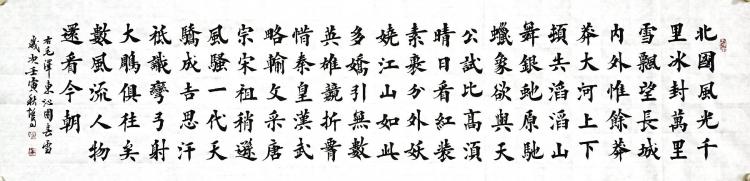 北國風光千
里冰封萬里
雪飄望長城
內外惟餘莽
莽大河上下
頓失滔滔山
舞銀虵原馳
蠟象欲與天
公試比高須
晴日看紅裝
素裹分外妖
嬈江山如此
多嬌引無數
英雄競折腰
惜秦皇漢武
略輸文采唐
宗宋祖稍遜
風騷一代天
驕成吉思汗
祗識彎弓射
大鵰俱往矣
數風流人物
還看今朝
右毛澤東沁園春雪
歲次壬寅秋